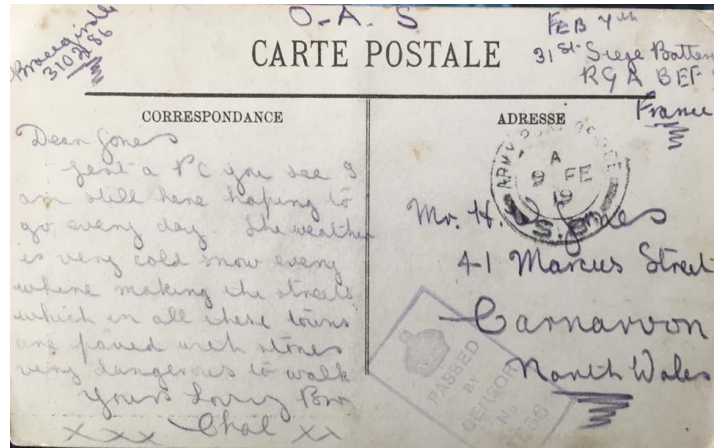 O-A-S
FEB 7th
31st Siege Battery
RGA BEF
France
310286
CARTE POSTALE
CORRESPONDANCE
ADRESSE
Dear Jones
Jest a PC you see I
am still here hoping to
go every day The weather
is very cold snow every
where making the streets
which in all these towns
are paved with stones
very dangerous to walk
Yours Loving Bro
xxx Chal xx
ARMY POST OFFICE
A
9 FE
19
S.8
Mr. H. Jones
41 Marcus Street
Carnarvon
North Wales
PASSED
BY
CENSOR
No.